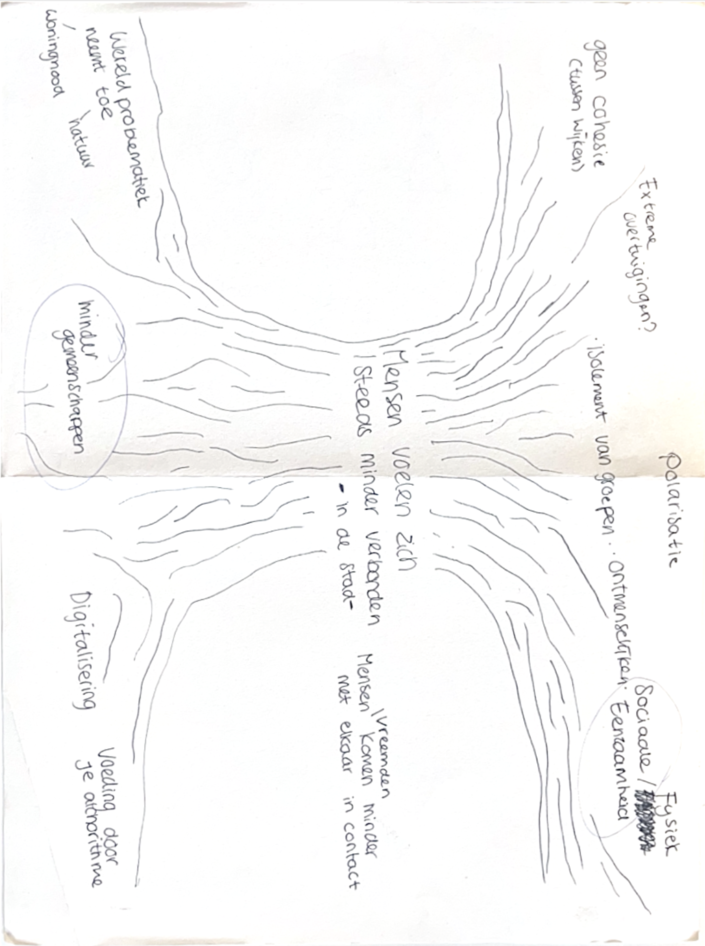 geen cohesie
(tussen wijken)
Extreme
overtuigingen?
Polarisatie
· isolement van groepen · · ontmenselijken · Eenzaamheid
Sociaale / Fysiek
Mensen voelen zich
steeds minder verbonden
- in de stad -
vreemden
Mensen komen minder
met elkaar in contact
Wereldproblematiek
neemt toe
woningnood
natuur
minder
gemeenschappen
Digitalisering
Voeding door
je althorithme